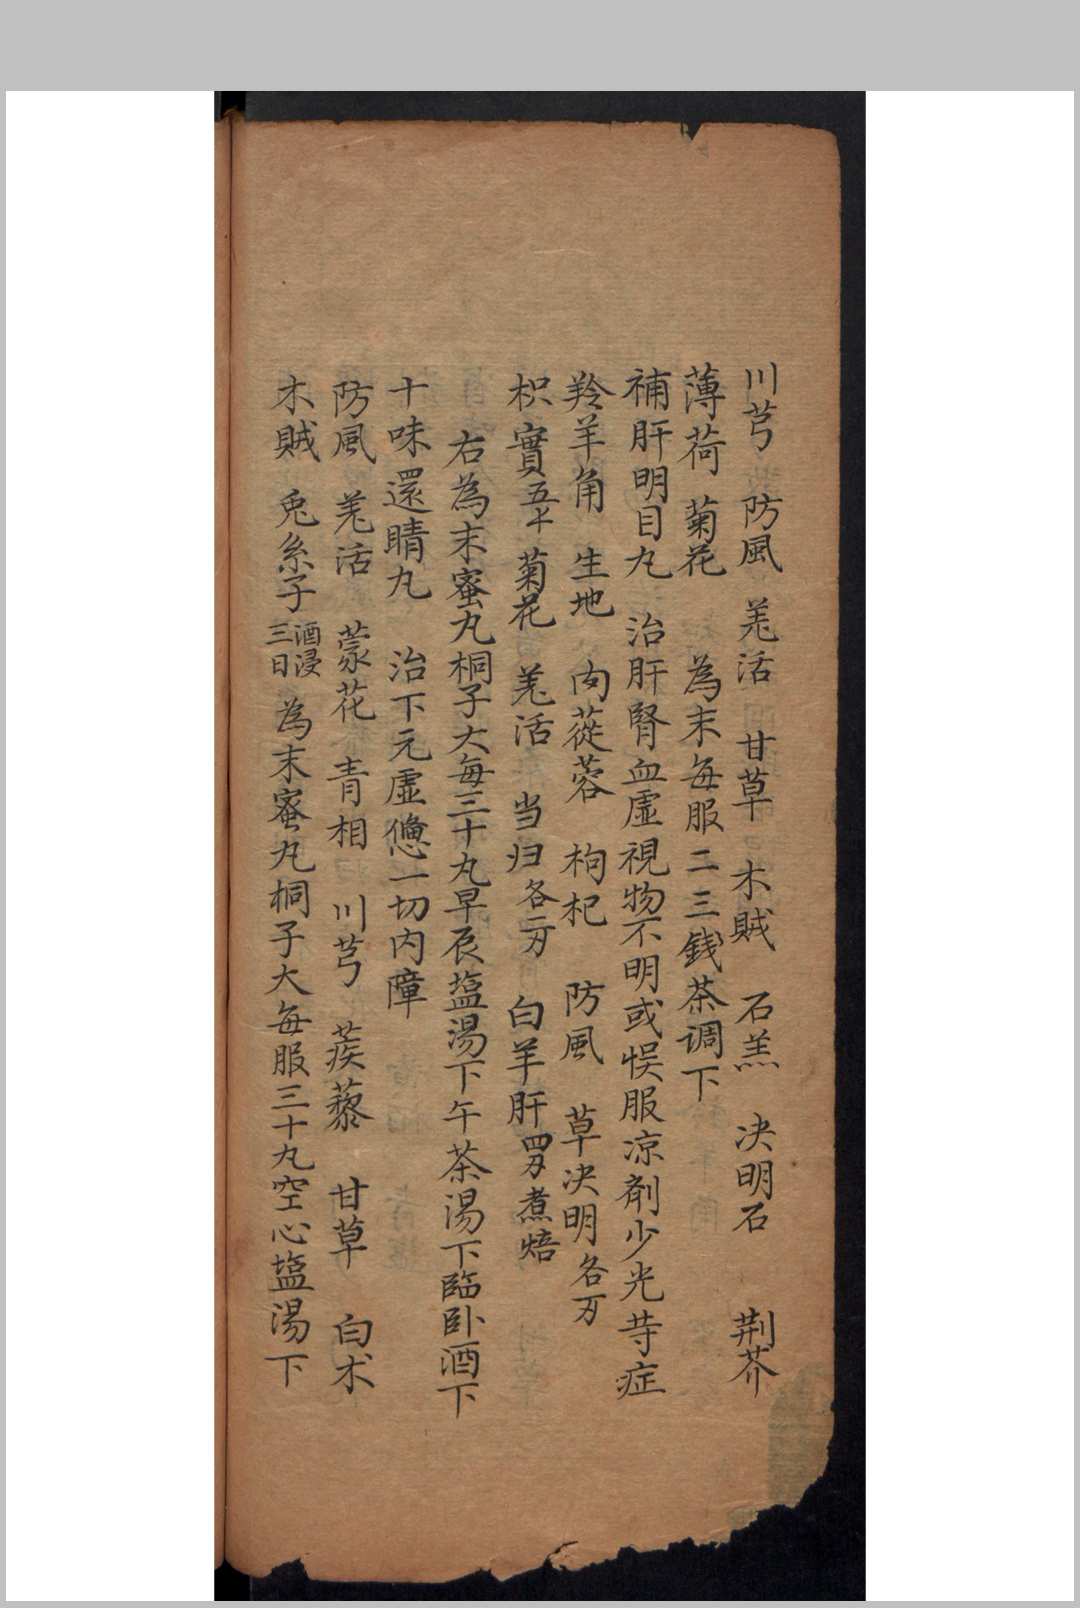 川芎 防風 羌活 甘草 木賊 石羔 决明石 荆芥
薄荷 菊花 為末每服二三錢茶调下
補肝明目丸 治肝腎血虛視物不明或悞服凉剤少光䓁症
羚羊角 生地 肉蓯蓉 枸杞 防風 草决明各刃
枳實五𠦜 菊花 羌活 当归各二刃 白羊肝四刃煮焙
右為末蜜丸桐子大每三十丸早辰塩湯下午茶湯下臨卧酒下
十味還睛丸 治下元虛憊一切内障
防風 羌活 蒙花 青相 川芎 蒺藜 甘草 白术
木賊 兎糸子酒浸三日為末蜜丸桐子大每服三十丸空心塩湯下